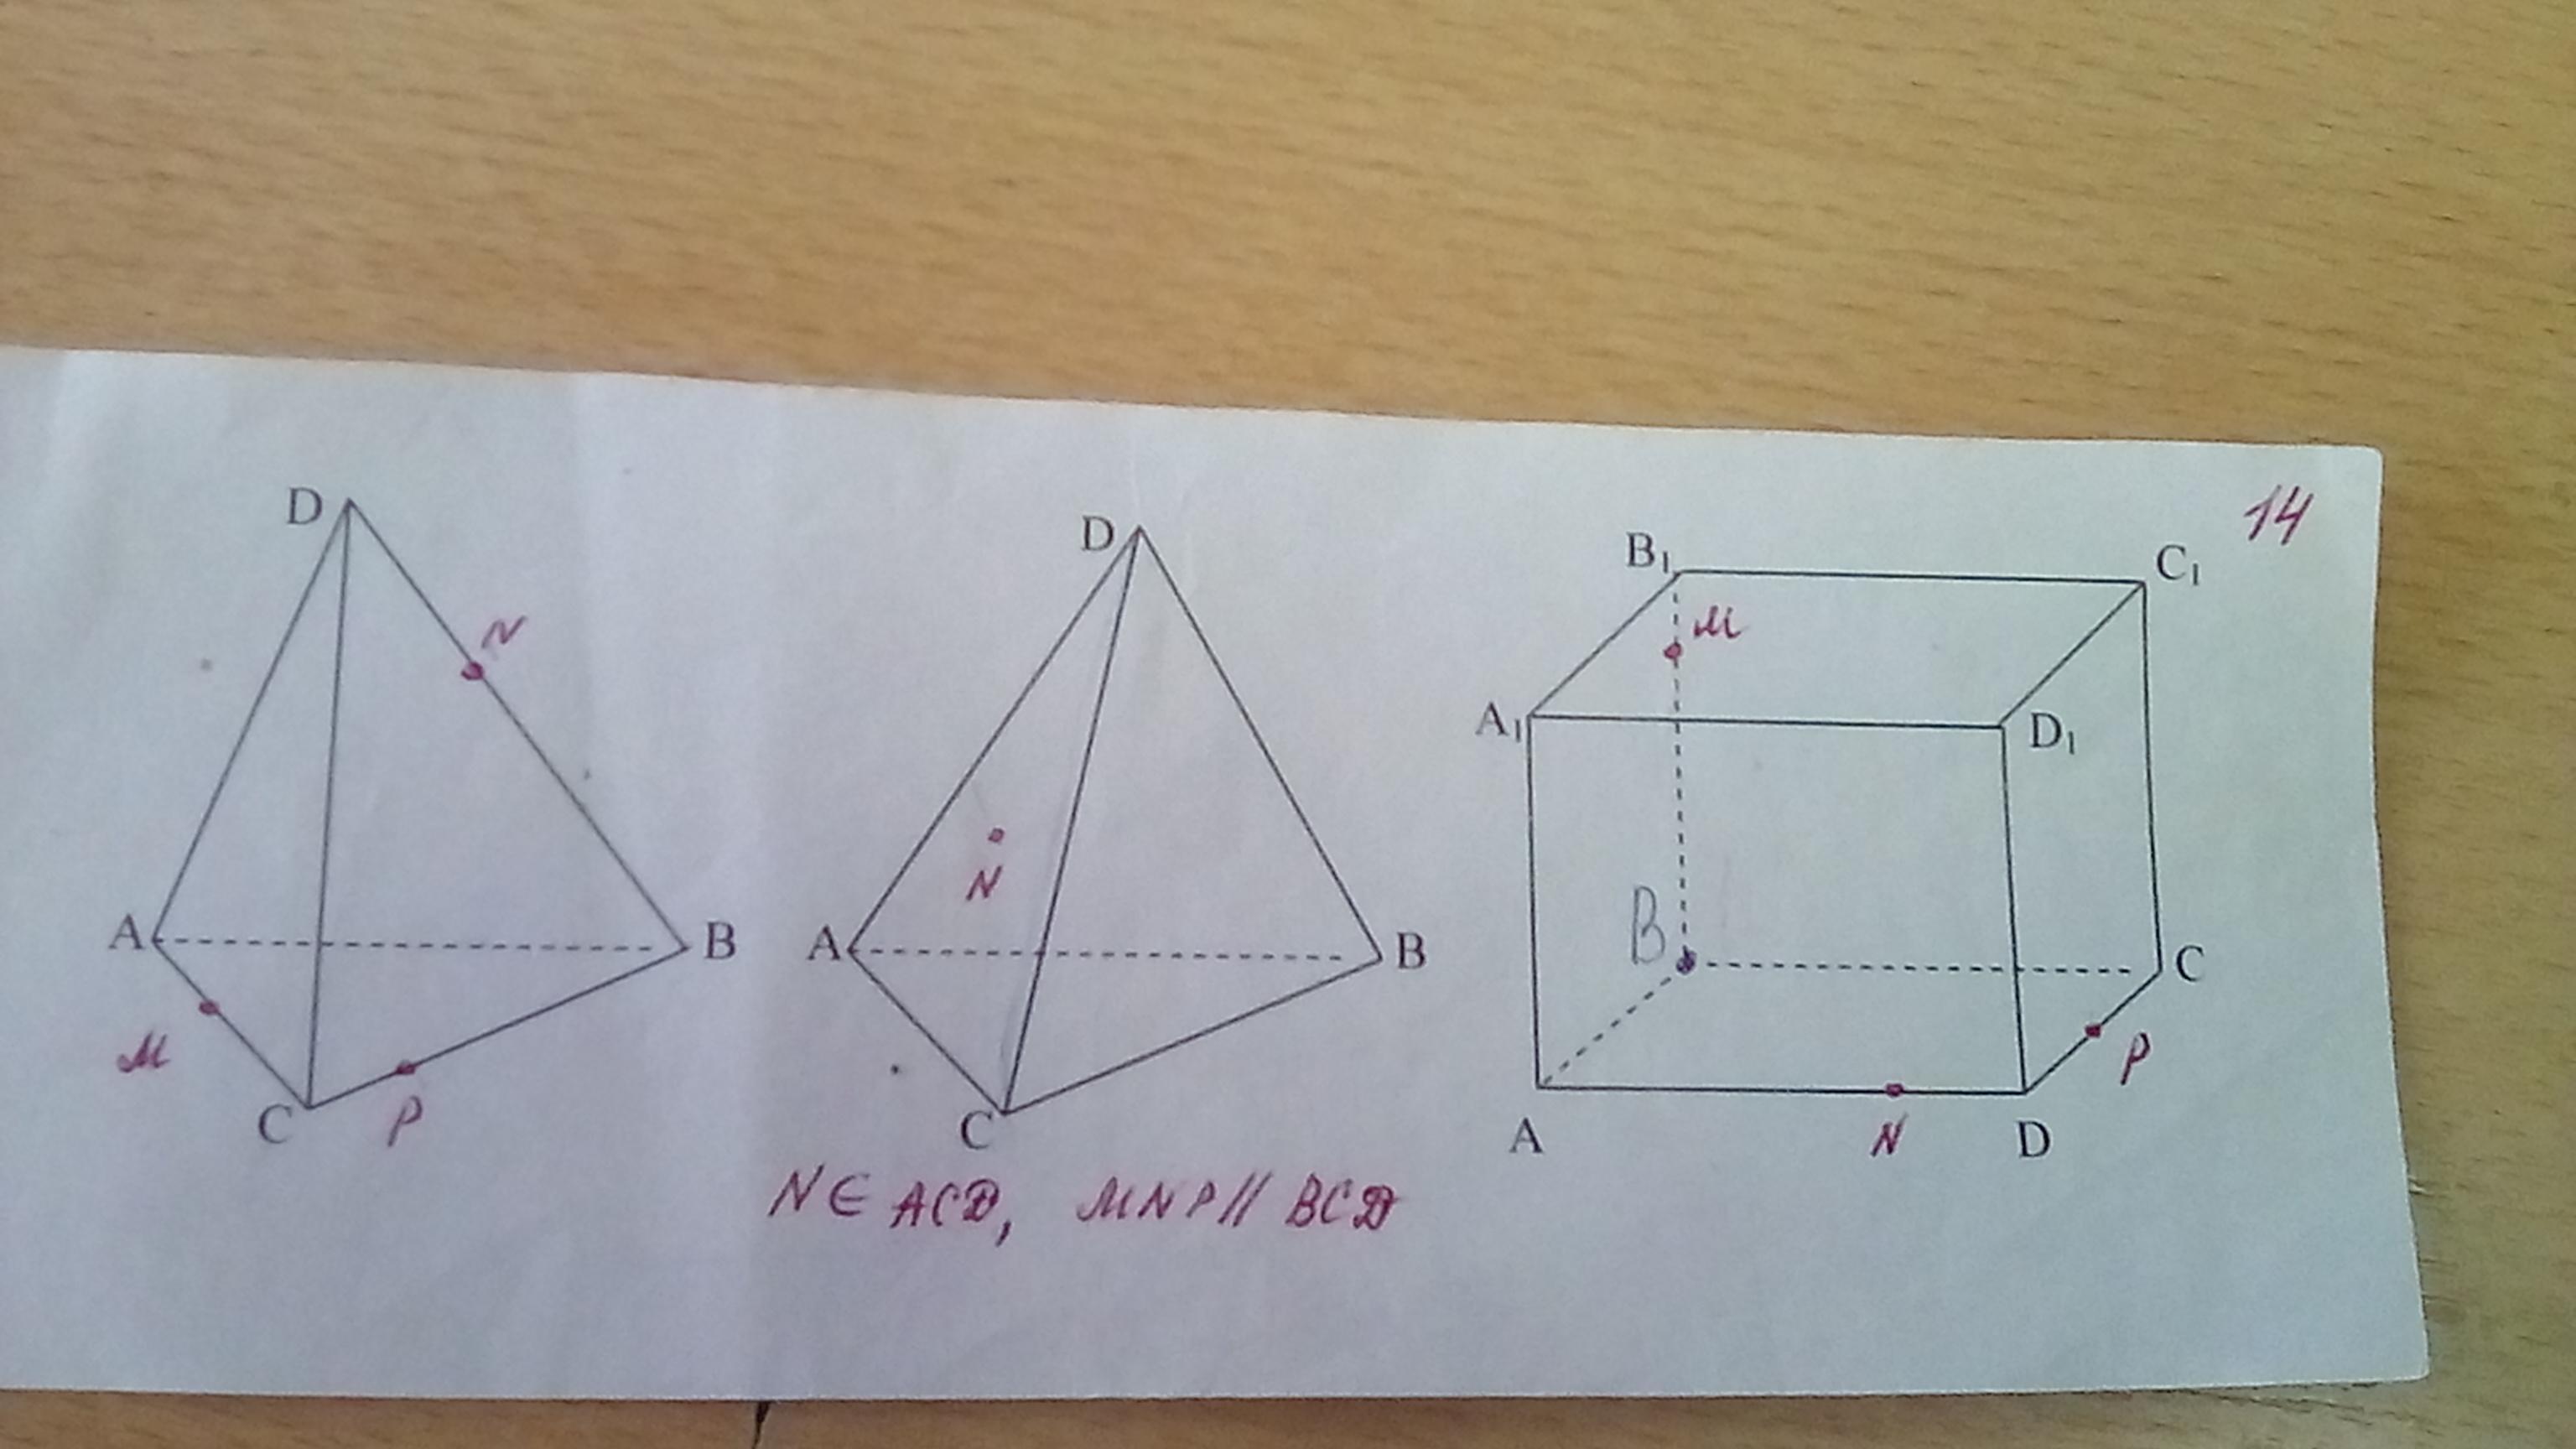 14
D
N
A
B
M
C
P
D
N
A
B
C
N ∈ ACD, MNP // BCD
B₁
C₁
M
A₁
D₁
B
C
P
A
N
D